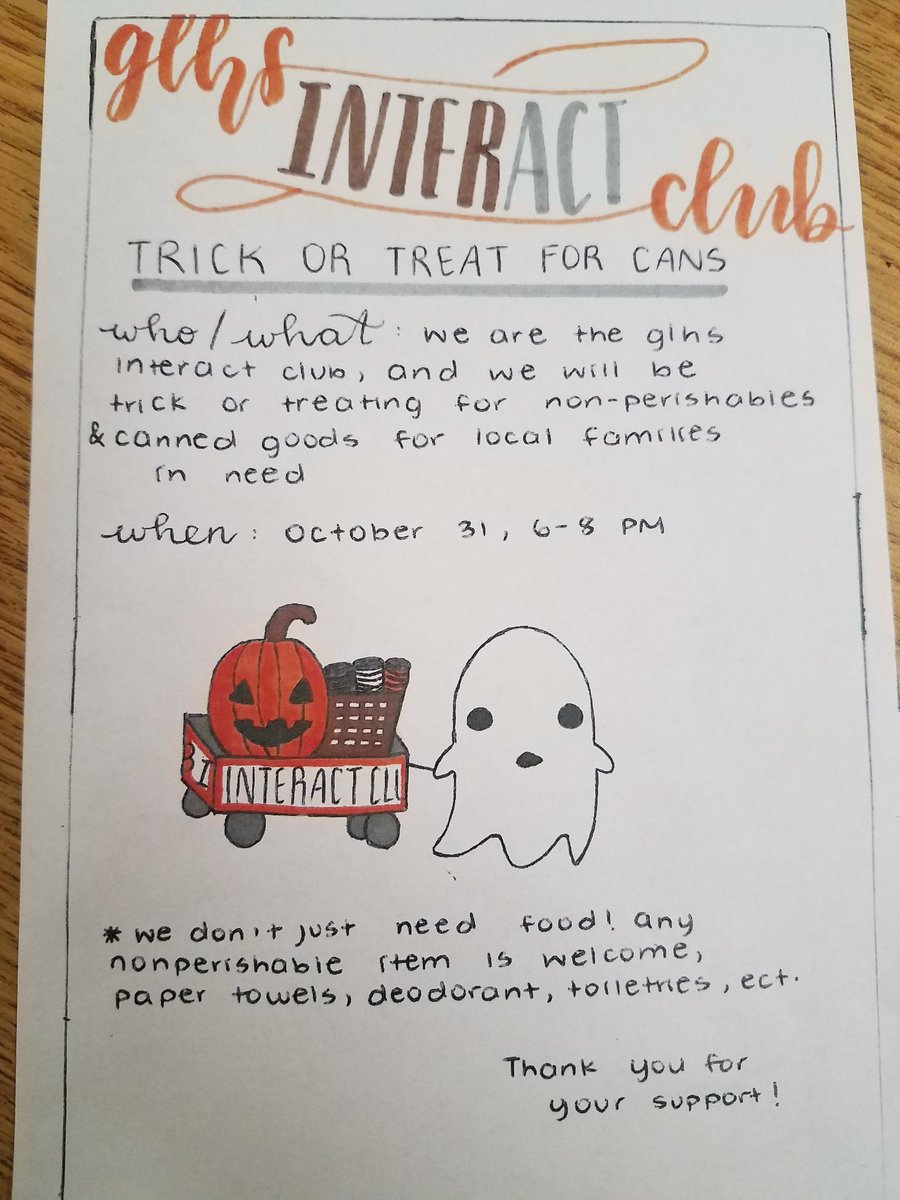 glhs
INTERACT
club
TRICK OR TREAT FOR CANS
who/what: we are the glhs
interact club, and we will be
trick or treating for non-perishables
& canned goods for local families
in need
when: october 31, 6-8 PM
INTERACT CLU
* we don't just need food! any
nonperishable item is welcome,
paper towels, deodorant, toiletries, ect.
Thank you for
your support!